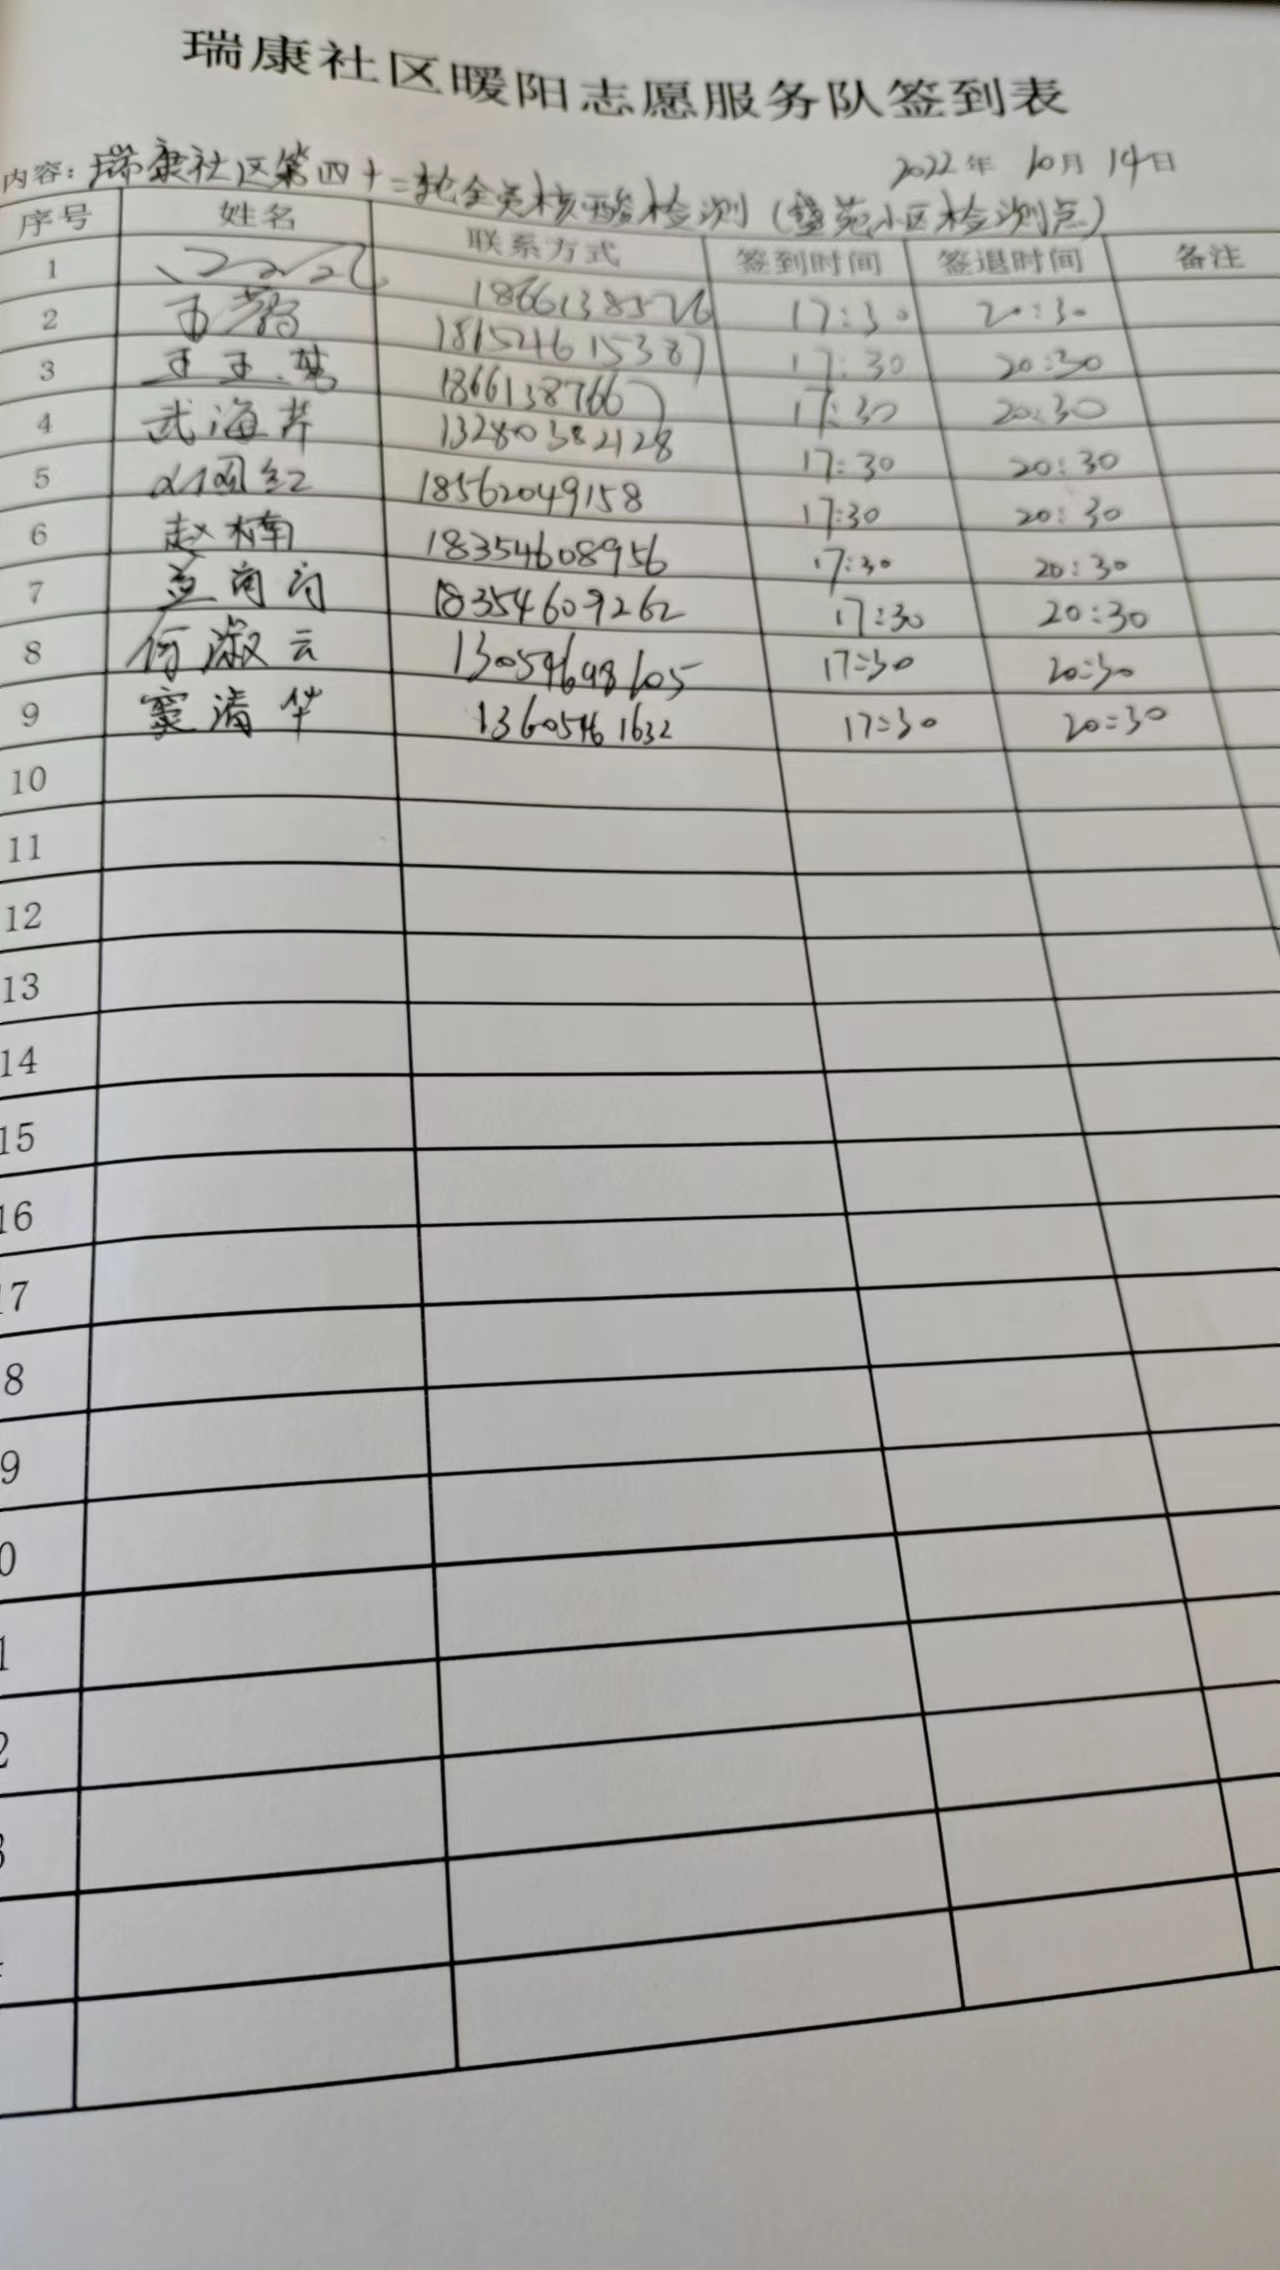 瑞康社区暖阳志愿服务队签到表
2022年 10月 14日
内容：瑞康社区第四十二轮全员核酸检测（苑小区检测点）
序号 姓名 联系方式 签到时间 签退时间 备注
1 17:30 20:30
2 18152461538 17:30 20:30
3 18661387667 17:30 20:30
4 武海芹 13280382128 17:30 20:30
5 18562049158 17:30 20:30
6 赵楠 18354608956 17:30 20:30
7 18354609262 17:30 20:30
8 何淑云 13054698605 17:30 20:30
9 窦清华 13605461632 17:30 20:30
10
11
12
13
14
15
16
17
8
9
0
1
2
3